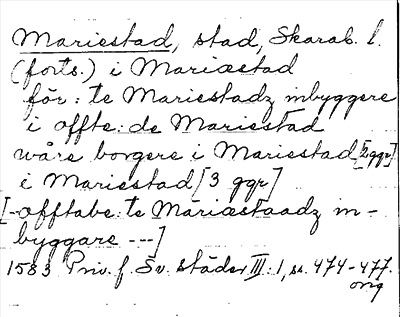 Mariestad, stad, Skarab. l.
(forts.) i Mariæstad
för: te Mariestadz inbyggere
i offte: de Mariestad
wåre borgere i Mariestad [2 ggr]
i Mariestad [3 ggr]
[- offtabe: te Mariæstaadz in-
byggare ---]
1583 Priv. f. Sv. städer III: 1, ss. 474-477.
orig